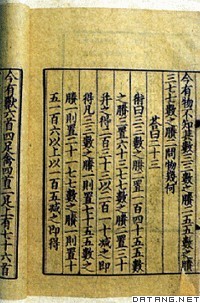 今有物不知其數三三數之賸二五五數之
賸三七七數之賸二問物幾何
荅曰二十三
術曰三三數之賸二置一百四十五五數
之賸三置六十三七七數之賸二置三十
并之得二百三十三以二百一十減之即
得凡三三數之賸一則置七十五五數之
賸一則置二十一七七數之賸一則置十
五一百六以上以一百五減之即得
今有獸六首四足禽四首二足上有七十六首
(C) WWW.DATANG.NET